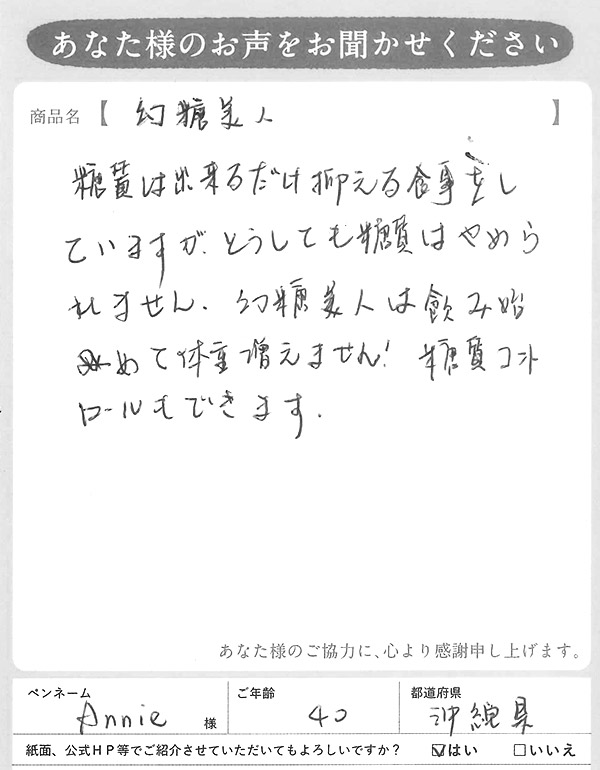 あなた様のお声をお聞かせください
商品名【 幻糖美人 】
糖質は出来るだけ抑える食事をし
ていますが、どうしても糖質はやめら
れません。幻糖美人は飲み始
めて体重増えません! 糖質コント
ロールもできます。
あなた様のご協力に、心より感謝申し上げます。
ペンネーム Annie 様 ご年齢 40 都道府県 沖縄県
紙面、公式HP等でご紹介させていただいてもよろしいですか? ☑はい □いいえ